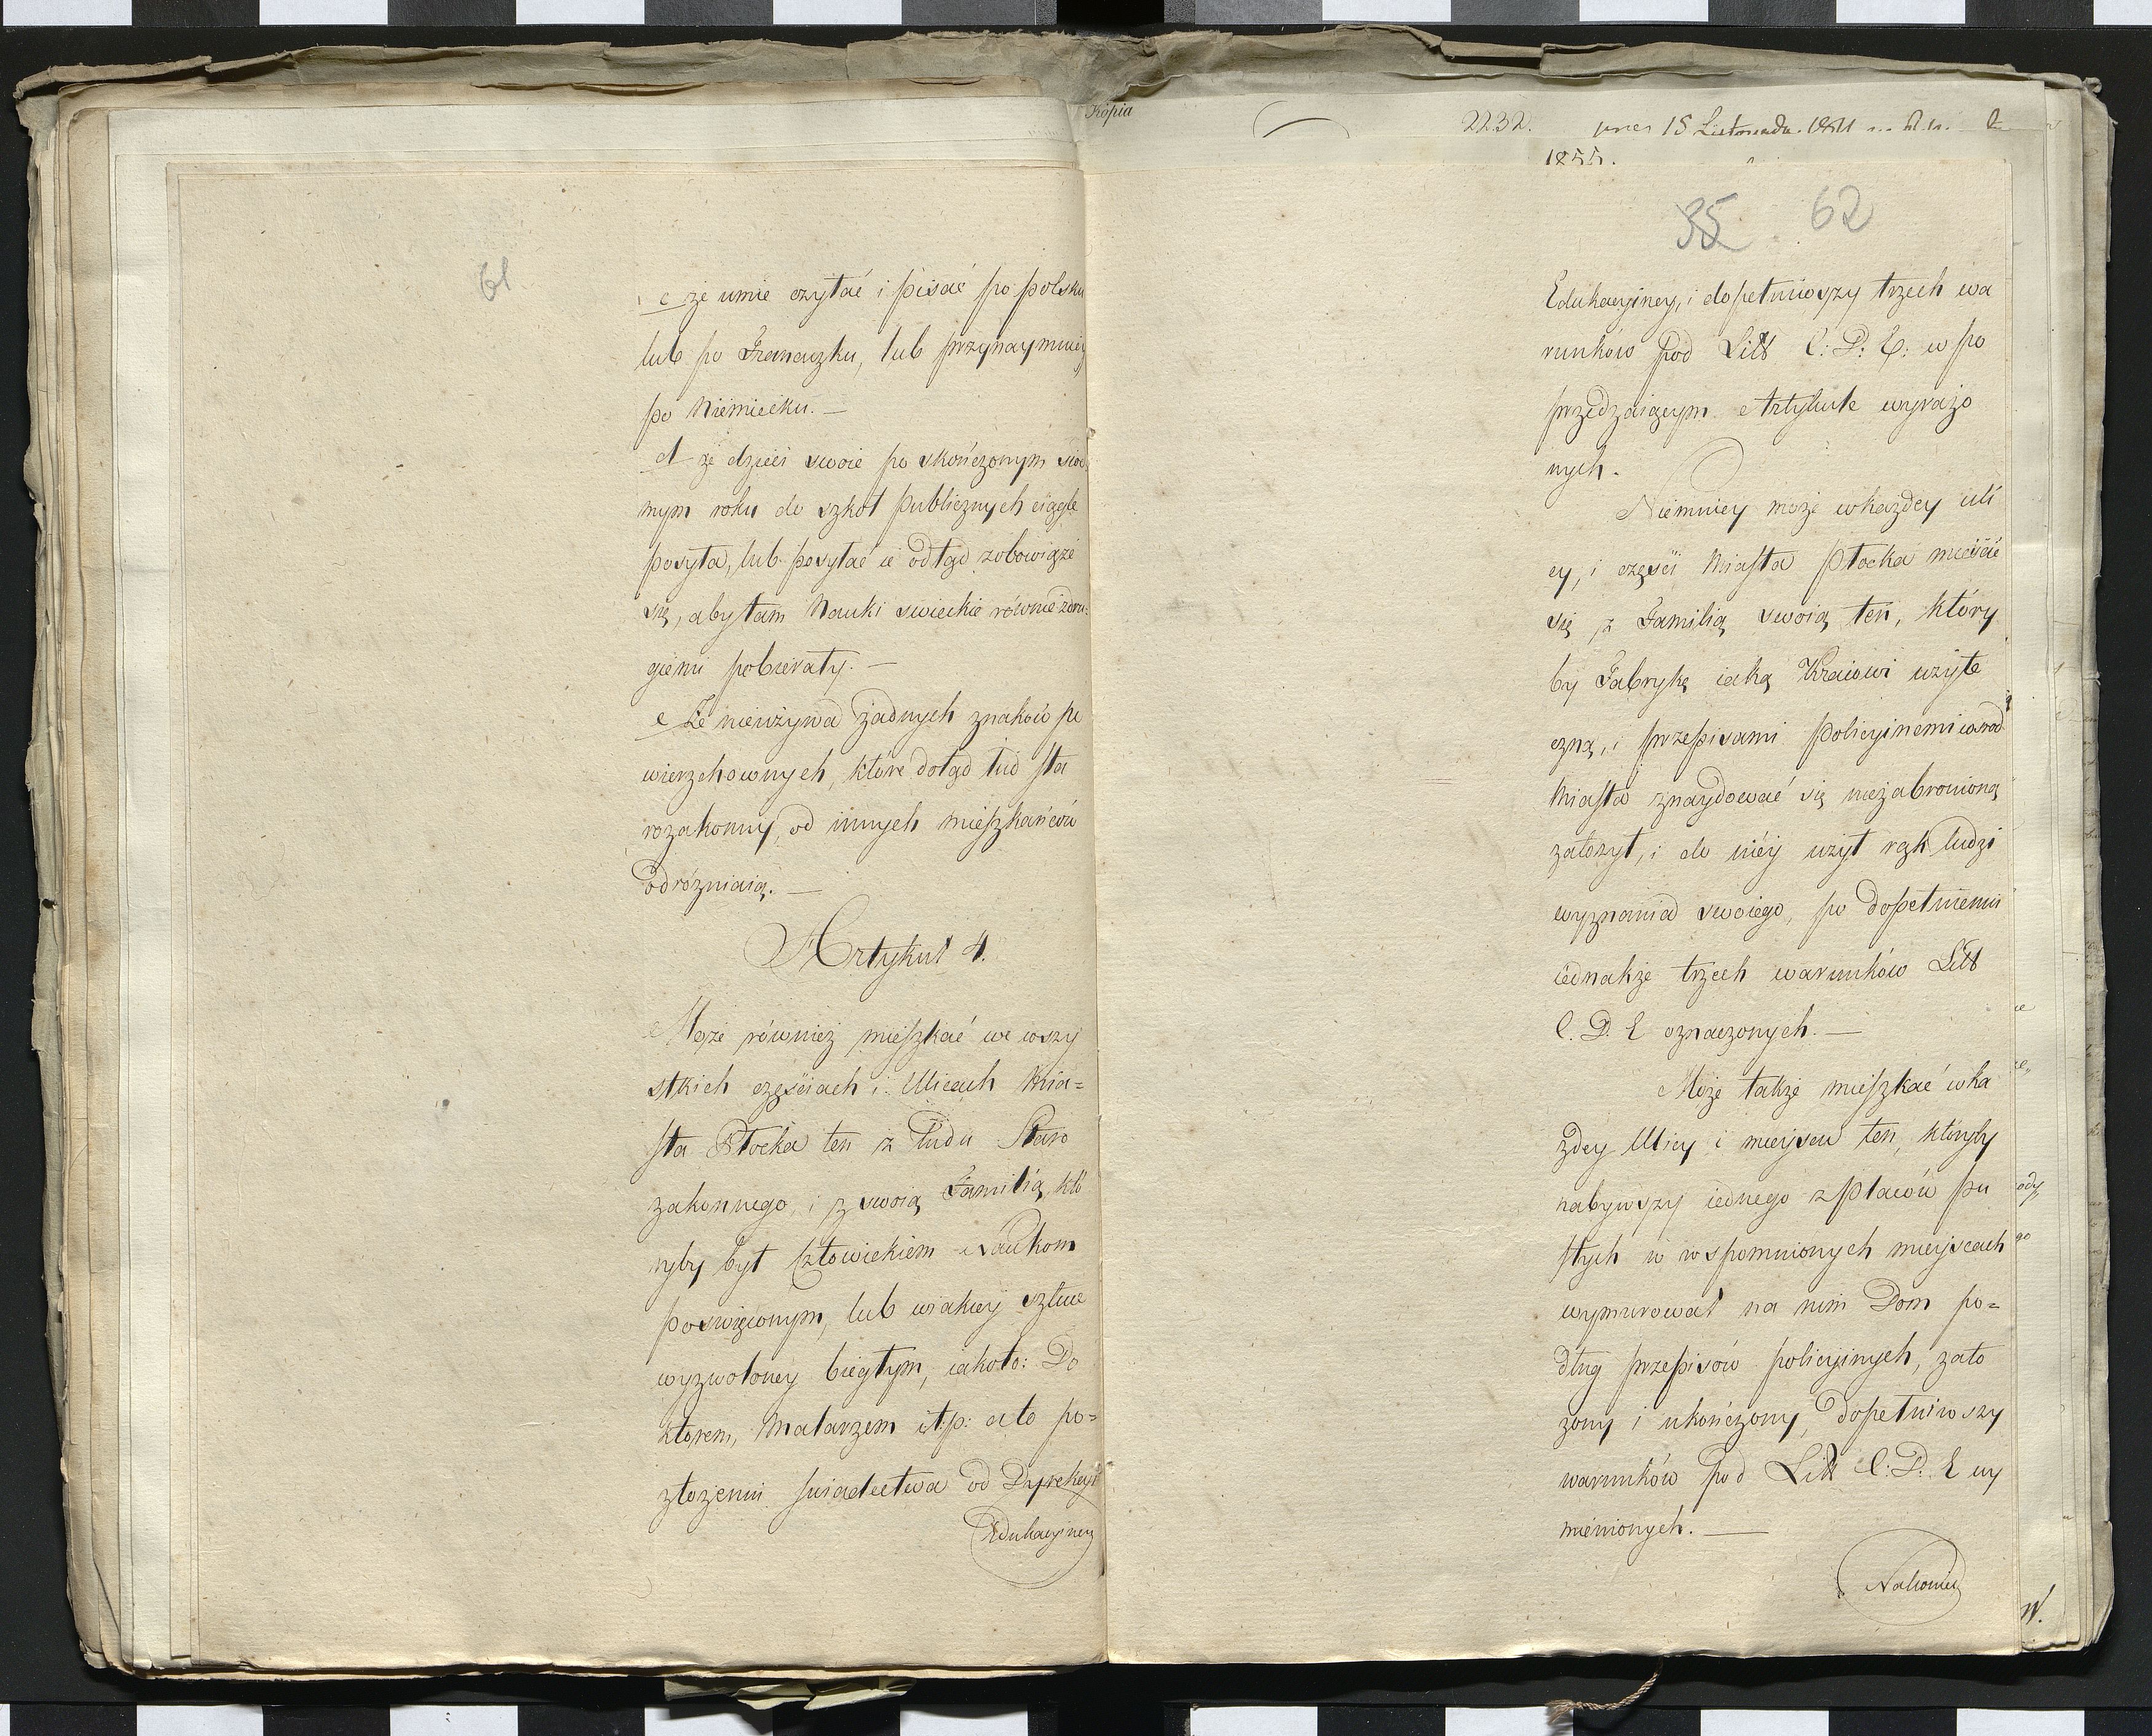 61
c że umie czytać i pisać po polsku
lub po Francuzku, lub przynaymniey
po Niemiecku. —
d że dzieci swoie po skończonym siód
mym roku do szkoł publicznych ciągle
posyła, lub posyłać ie odtąd zobowiąże
się, aby tam Nauki swieckie równie z dru:
giemi pobierały. —
e Że nieużywa żadnych znaków po
wierzchownych, które dotąd lud sta
rozakonny, od innych mieszkańców
odróżniaią. —
Artykuł 4.
Może również mieszkać we wszy
stkich częściach i Ulicach Mia=
sta Płocka ten z Ludu Staro
zakonnego, i z swoią Familią, któ
ryby był Człowiekiem Naukom
poswięconym, lub wiakiey sztuce
wyzwoloney biegłym, iakoto: Do
ktorem, Malarzem itp: a to po=
złożeniu swiadectwa od Dyrekcyi
Edukacyiney
Kopia
2232.
15 Listopada
1855.
35 62
Edukacyiney, i dopełniwszy trzech wa
runków pod Litt C: D: E: w po
przedzaiącym Artykule wyrażo
nych.
Niemniey może wkażdey uli
cy, i części Miasta Płocka mieścić
się z Familią swoią ten, który
by Fabrykę iaką Kraiowi użyte
czną, i przepisami policyinemi wsrod
Miasta znaydować się niezabronioną
założył, i do niéy użył rąk ludzi
wyznania swoiego, po dopełnieniu
iednakże trzech warunków Litt
C. D. E oznaczonych. —
Może także mieszkać wka
żdey Ulicy i mieyscu ten, któryby
nabywszy iednego z placów pu
stych w wspomnionych mieyscach
wymurował na nim Dom po=
dług przepisów policyinych, zało
żony i ukończony, dopełniwszy
warunków pod Litt C: D. E wy
mienionych. —